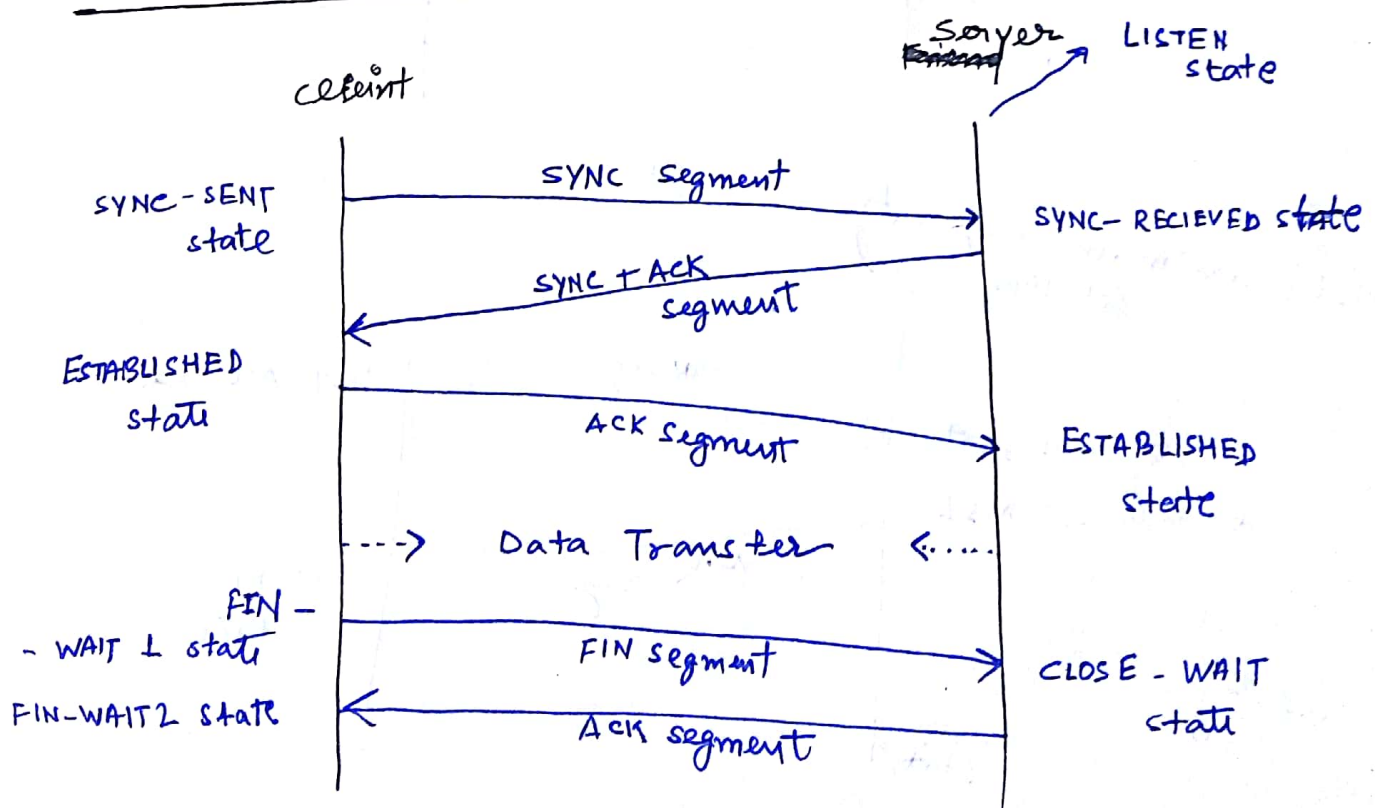 Server
LISTEN
state
cleint
SYNC segment
SYNC-SENT
state
SYNC- RECIEVED state
SYNC + ACK
segment
ESTABLISHED
state
ACK segment
ESTABLISHED
state
Data Transfer
FIN -
- WAIT 1 state
FIN segment
CLOSE - WAIT
state
FIN-WAIT 2 state
ACK segment